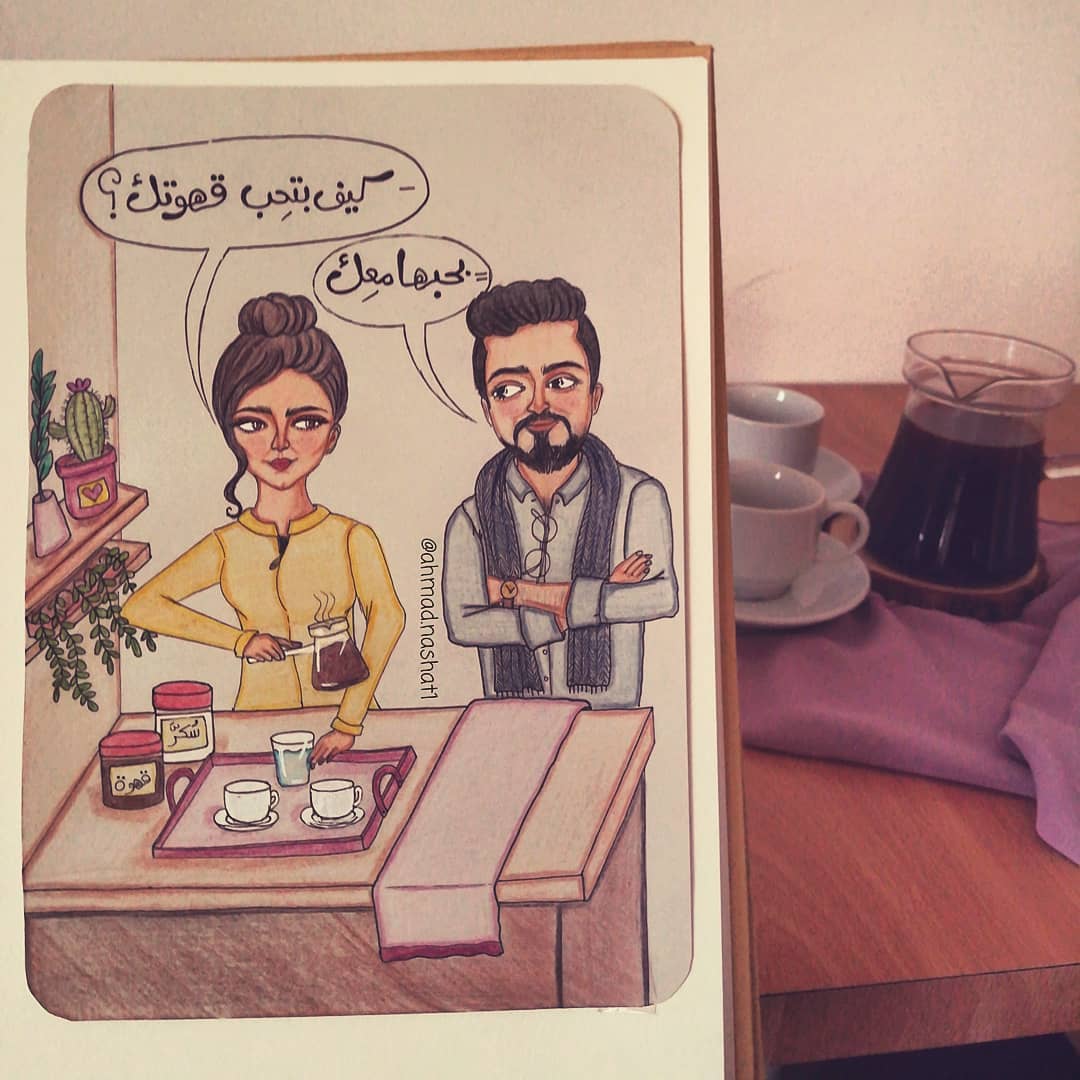 - كيف بتحِب قهوتك؟
= بحبها معِك
@ahmadnashat1
سُكّر
قهوة